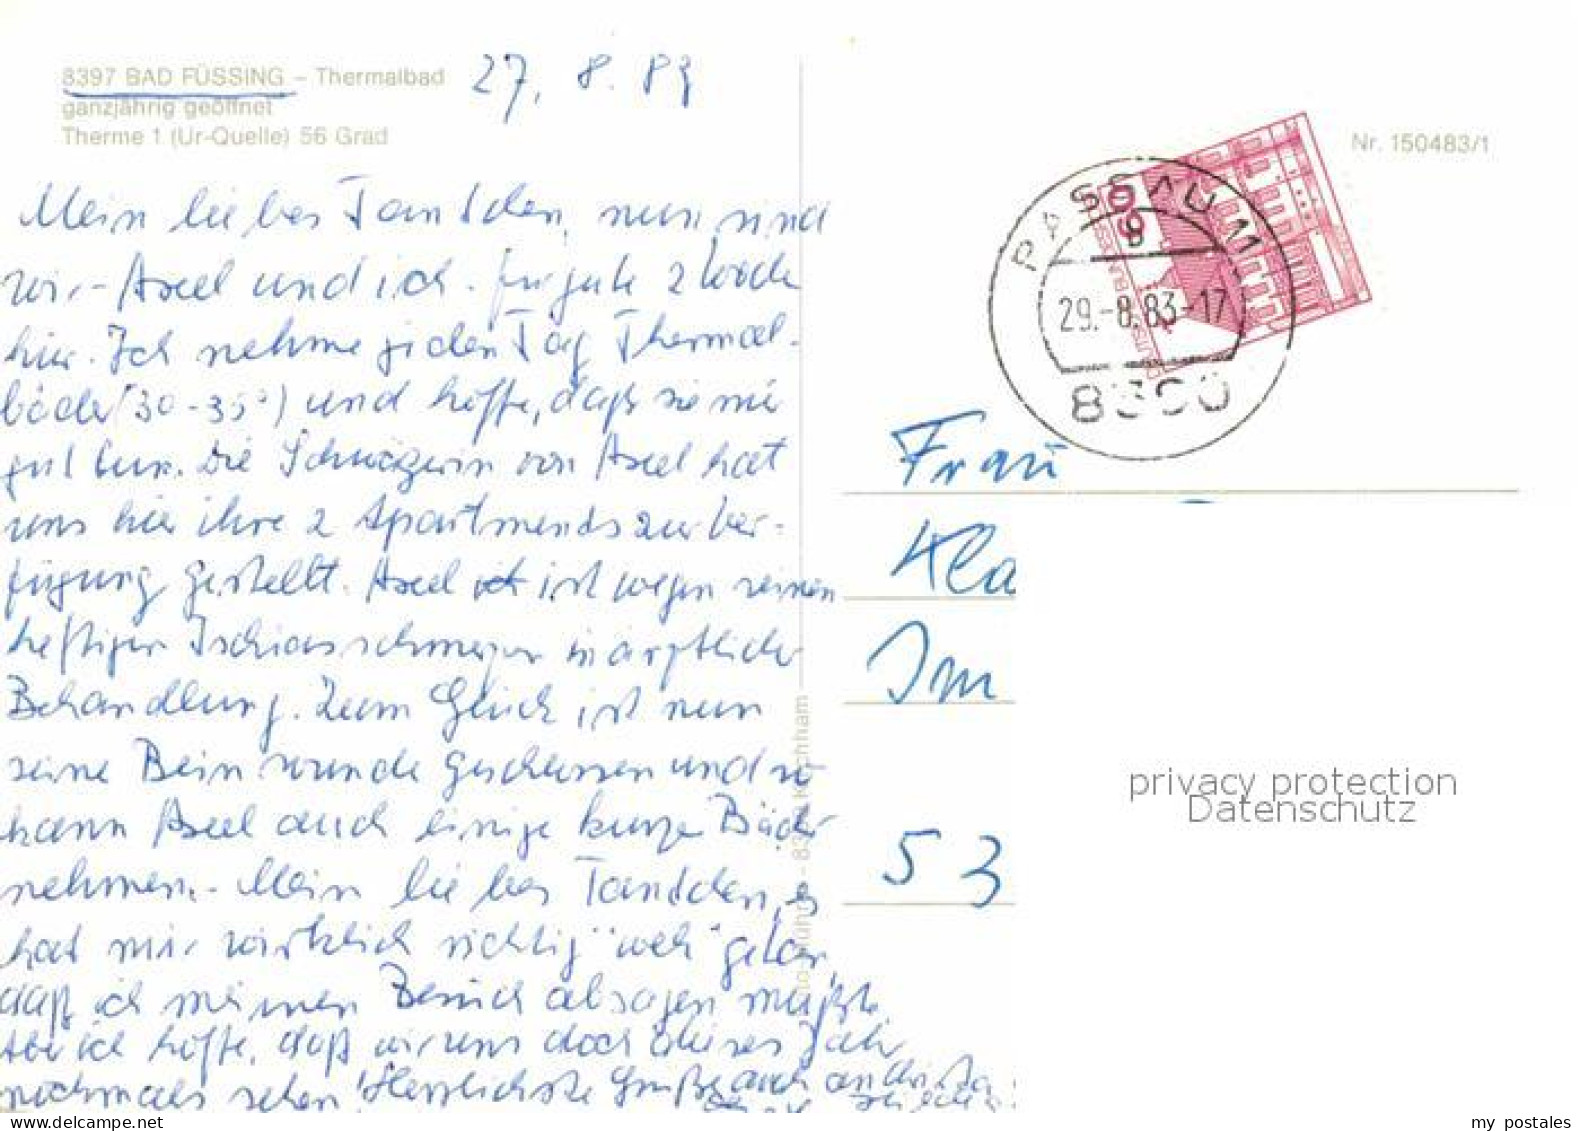 8397 BAD FÜSSING – Thermalbad
ganzjährig geöffnet
Therme 1 (Ur-Quelle) 56 Grad
27. 8. 83
Mein liebes Tantchen, nun sind
wir - Axel und ich - für gute 2 Woche
hier. Ich nehme jeden Tag Thermal-
bäder (30-35°) und hoffe, daß sie mir
gut tun. Die Schwägerin von Axel hat
uns hier ihre 2 Apartments zur Ver-
fügung gestellt. Axel ist wegen seinen
heftigen Ischiasschmerzen in ärztlicher
Behandlung. Zum Glück ist nun
seine Beinwunde geschlossen und so
kann Axel auch einige kurze Bäder
nehmen. - Mein liebes Tantchen, es
hat mir wirklich richtig "weh" getan,
daß ich meinen Besuch absagen mußte.
Aber ich hoffe, daß wir uns doch dieses Jahr
nochmals sehen! Herzlichste Grüße auch an
Nr. 150483/1
PASSAU 11
29.-8.83-17
8390
60
Frau
Kla
Im
53
privacy protection
Datenschutz
my postales
www.delcampe.net